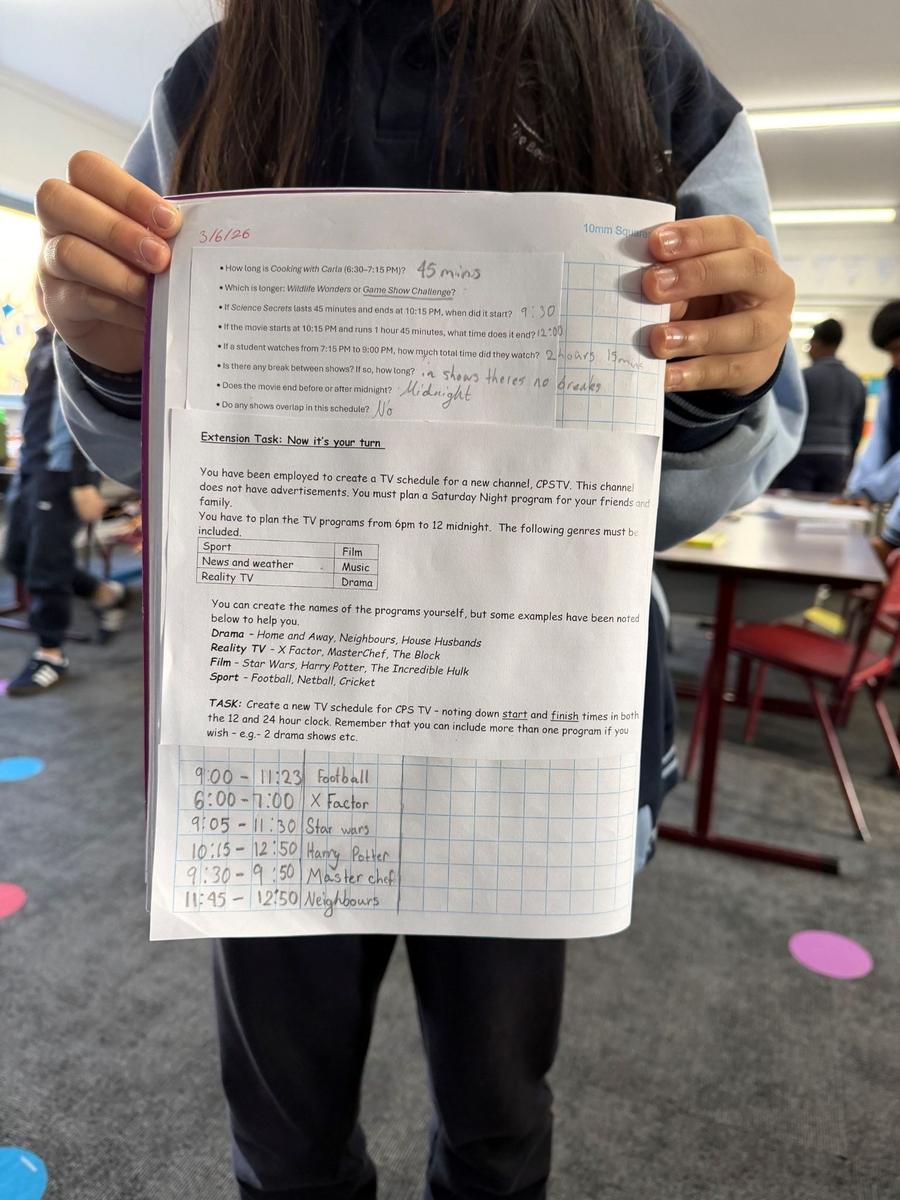 3/6/26
10mm Squares
• How long is Cooking with Carla (6:30–7:15 PM)? 45 mins
• Which is longer: Wildlife Wonders or Game Show Challenge?
• If Science Secrets lasts 45 minutes and ends at 10:15 PM, when did it start? 9:30
• If the movie starts at 10:15 PM and runs 1 hour 45 minutes, what time does it end? 12:00
• If a student watches from 7:15 PM to 9:00 PM, how much total time did they watch? 2 hours 15 mins
• Is there any break between shows? If so, how long? in shows theres no breaks
• Does the movie end before or after midnight? Midnight
• Do any shows overlap in this schedule? No
Extension Task: Now it's your turn
You have been employed to create a TV schedule for a new channel, CPSTV. This channel
does not have advertisements. You must plan a Saturday Night program for your friends and
family.
You have to plan the TV programs from 6pm to 12 midnight. The following genres must be
included.
Sport Film
News and weather Music
Reality TV Drama
You can create the names of the programs yourself, but some examples have been noted
below to help you.
Drama – Home and Away, Neighbours, House Husbands
Reality TV – X Factor, MasterChef, The Block
Film – Star Wars, Harry Potter, The Incredible Hulk
Sport – Football, Netball, Cricket
TASK: Create a new TV schedule for CPS TV – noting down start and finish times in both
the 12 and 24 hour clock. Remember that you can include more than one program if you
wish – e.g.- 2 drama shows etc.
9:00 – 11:23 Football
6:00 – 7:00 X Factor
9:05 – 11:30 Star wars
10:15 – 12:50 Harry Potter
9:30 – 9:50 Master chef
11:45 – 12:50 Neighbours